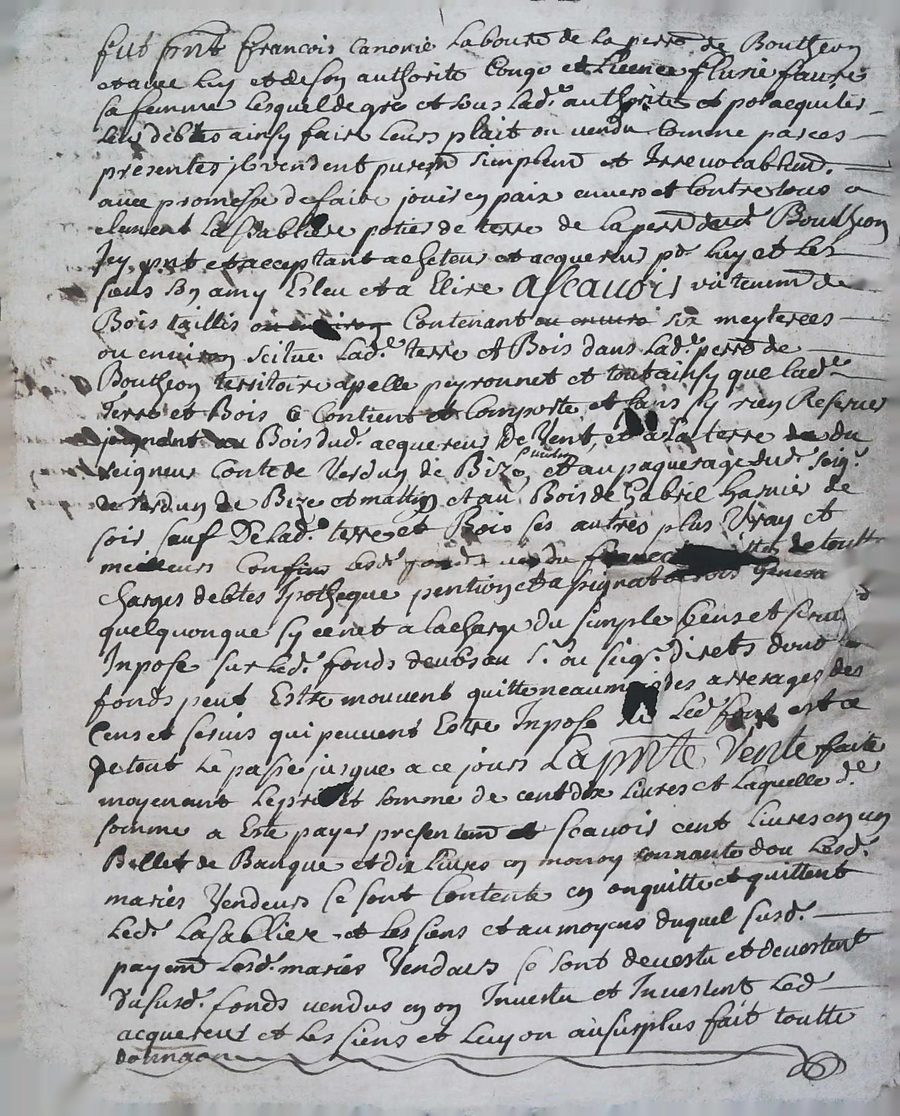 fut pnt francois Canonie Laboure de La perr.e de Boutheon
et avec Luy et de son authorite Conge et Licence flurie faure
sa femme Lesquel de gre et sous lad.e authorite et por acquiter
Leus debtes ainsy faire Leurs plait on vendu Comme par ces
presentes jl vendent purem simplem et Irrevocablem.
avec promesse de faire jouir en paix envers et Contre tous a
element La Sabliere potier de terre de La perr dud.t Boutheon
Jcy pnt et acceptant acheteur et acquereur pr Luy et Les
siens son amy Esleu et a Elire Ascavoir un tenem de
Bois taillis ou environ Contenant ou environ six meyterees
ou environ scitue Lad.e terre et Bois dans Lad.e perr de
Boutheon territoire apelle peyronnet et tout ainsy que Lad.e
Terre et Bois Ce Contient et Comporte et sans sy rien Reserver
joignant au Bois dud. acquereur de Vent, et a La terre du
seigneur Conte de Verdun de Bize et au paquerage dud. seig.r
de Verdun de Bize et mattin et au Bois de Gabriel Garnier de
soir sauf De Lad.e terre et Bois ses autres plus Vray et
meilleurs Confins Led.t fonds vendu franc de toutte
charges debtes Ipotheque pention et assignat
quelquonque sy ce net a La charge du simple Cens et servis
Inpose sur Led.t fonds deubs au S.r ou seig.r directs dont
fonds peut Estre mouvent quitte neaumoins des arrerages des
Cens et servis qui peuvent Estre Inpose Led. fons et ce
de tout Le passe jusque a ce jours La pnte Vente faite
moyenant Le prix et somme de cent dix Livres et Laquelle d.e
somme a Este payer presentem et scavoir cent Livres en un
Billet de Banque et dix Livres en monoy sonnante dou Lesd.
maries Vendeurs se sont Contente en on quitte et quittent
Led.t La Sabliere et Les siens et au moyens duquel susd.
payem Lesd. maries Vendeurs se sont devestu et devestent
du susd. fonds vendus en on Investu et Investent Led
acquereur et Les siens et Luy on au surplus fait toutte
donnaon